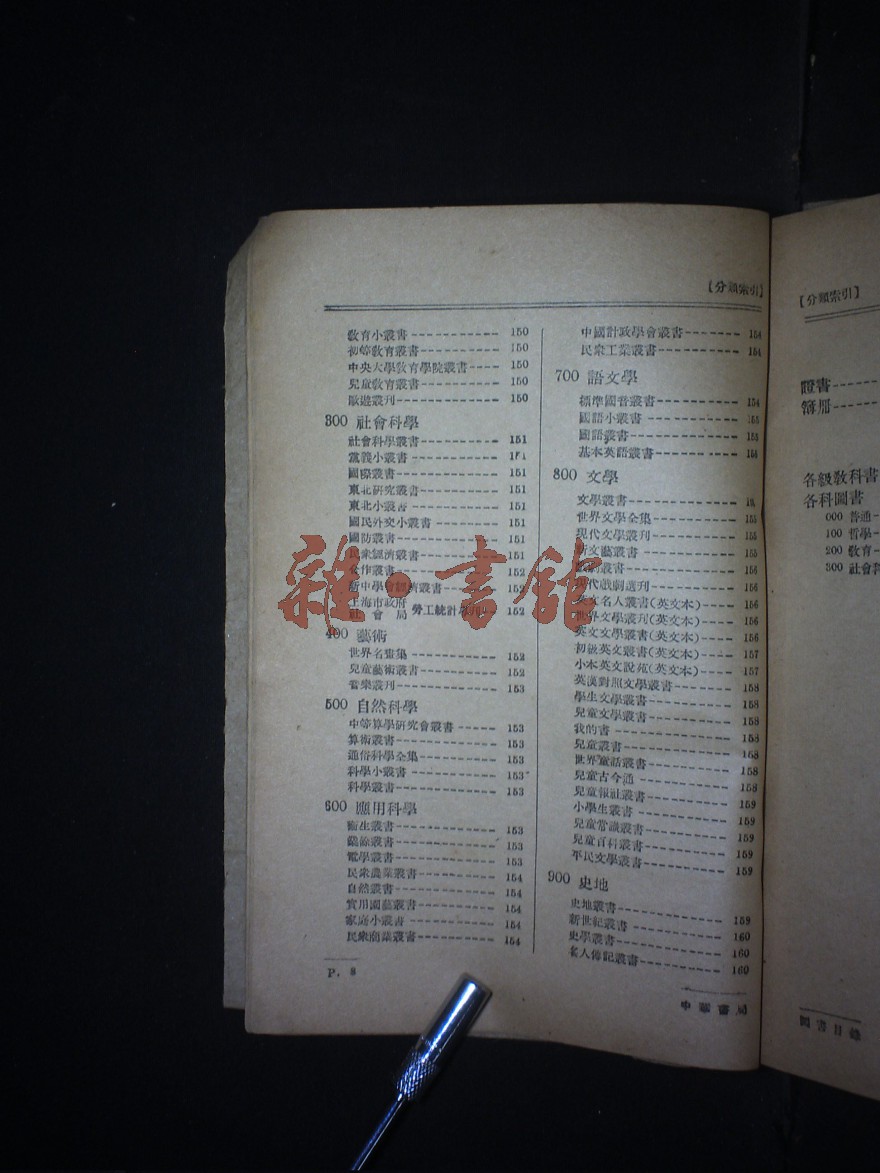 【分類索引】
教育小叢書 150
初等教育叢書 150
中央大學教育學院叢書 150
兒童教育叢書 150
歐遊叢刊 150
300 社會科學
社會科學叢書 151
黨義小叢書
國際叢書 151
東北研究叢書 151
東北小叢書 151
國民外交小叢書 151
國防叢書 151
民衆經濟叢書 151
合作叢書 152
新中學會經濟叢書 152
上海市政府
社會局 勞工統計專刊 152
400 藝術
世界名畫集 152
兒童藝術叢書 152
音樂叢刊 153
500 自然科學
中等算學研究會叢書 153
算術叢書 153
通俗科學全集 153
科學小叢書 153
科學叢書 153
600 應用科學
衞生叢書 153
叢書 153
電學叢書 153
民衆農業叢書 154
自然叢書 154
實用園藝叢書 154
家庭小叢書 154
民衆商業叢書 154
中國計政學會叢書 154
民衆工業叢書 154
700 語文學
標準國音叢書 154
國語小叢書 155
國語叢書 155
基本英語叢書
800 文學
文學叢書
世界文學全集 155
現代文學叢刊 155
新文藝叢書 155
戲劇叢書 156
現代戲劇選刊 156
英文名人叢書(英文本) 156
世界文學叢刊(英文本) 156
英文文學叢書(英文本) 156
初級英文叢書(英文本) 157
小本英文說苑(英文本) 157
英漢對照文學叢書 158
學生文學叢書 158
兒童文學叢書 158
我的書 158
兒童叢書 158
世界童話叢書 158
兒童古今通 158
兒童報社叢書 159
小學生叢書 159
兒童常識叢書 159
兒童百科叢書 159
平民文學叢書 159
900 史地
史地叢書 159
新世紀叢書 160
史學叢書 160
名人傳記叢書 160
P. 8
雜·書館
【分類索引】
證書
簿册
各級教科書
各科圖書
000 普通
100 哲學
200 教育
300 社會科
圖書目錄